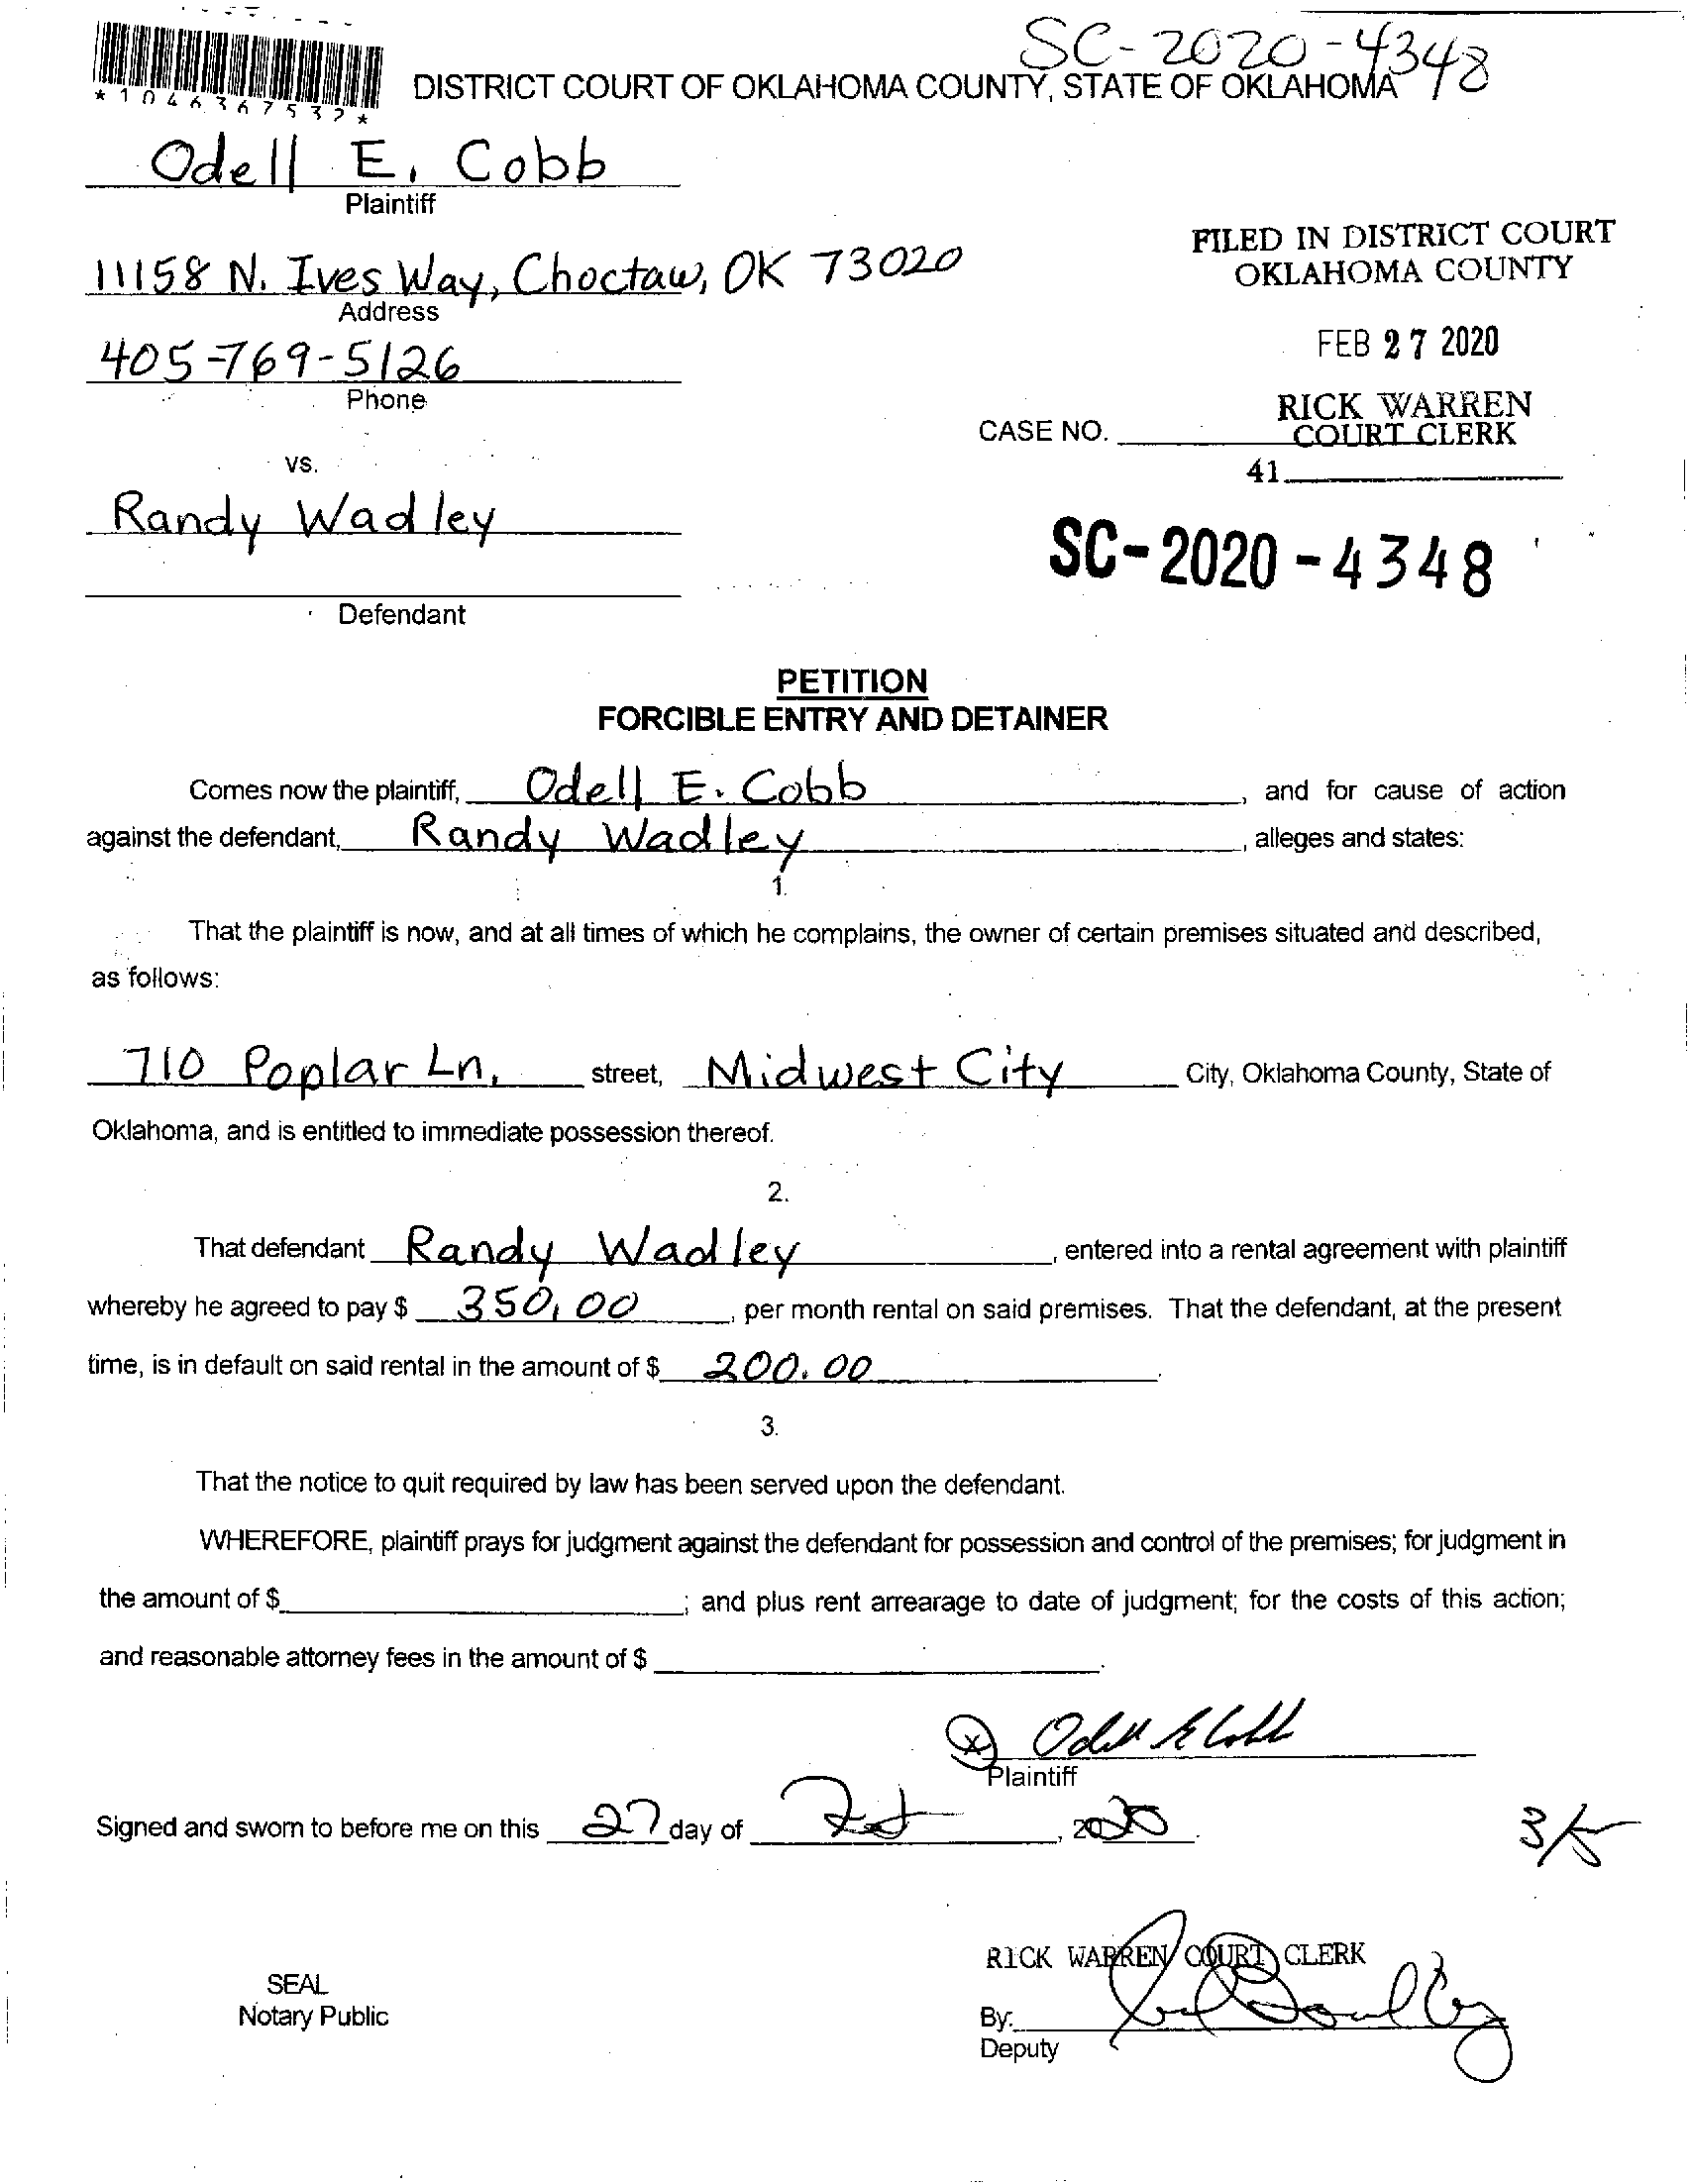 SC-2020-4348
*1046367532*
DISTRICT COURT OF OKLAHOMA COUNTY, STATE OF OKLAHOMA
Odell E. Cobb
Plaintiff
FILED IN DISTRICT COURT
OKLAHOMA COUNTY
11158 N. Ives Way, Choctaw, OK 73020
Address
FEB 27 2020
405-769-5126
Phone
RICK WARREN
COURT CLERK
CASE NO.
41
vs.
Randy Wadley
SC-2020-4348
Defendant
PETITION
FORCIBLE ENTRY AND DETAINER
Comes now the plaintiff, Odell E. Cobb, and for cause of action
against the defendant, Randy Wadley, alleges and states:
1.
That the plaintiff is now, and at all times of which he complains, the owner of certain premises situated and described,
as follows:
710 Poplar Ln. street, Midwest City City, Oklahoma County, State of
Oklahoma, and is entitled to immediate possession thereof.
2.
That defendant Randy Wadley, entered into a rental agreement with plaintiff
whereby he agreed to pay $ 350.00, per month rental on said premises. That the defendant, at the present
time, is in default on said rental in the amount of $ 200.00.
3.
That the notice to quit required by law has been served upon the defendant.
WHEREFORE, plaintiff prays for judgment against the defendant for possession and control of the premises; for judgment in
the amount of $ ; and plus rent arrearage to date of judgment; for the costs of this action;
and reasonable attorney fees in the amount of $ .
X Odell E Cobb
Plaintiff
Signed and sworn to before me on this 27 day of Feb, 2020.
RICK WARREN COURT CLERK
SEAL
Notary Public
By:
Deputy